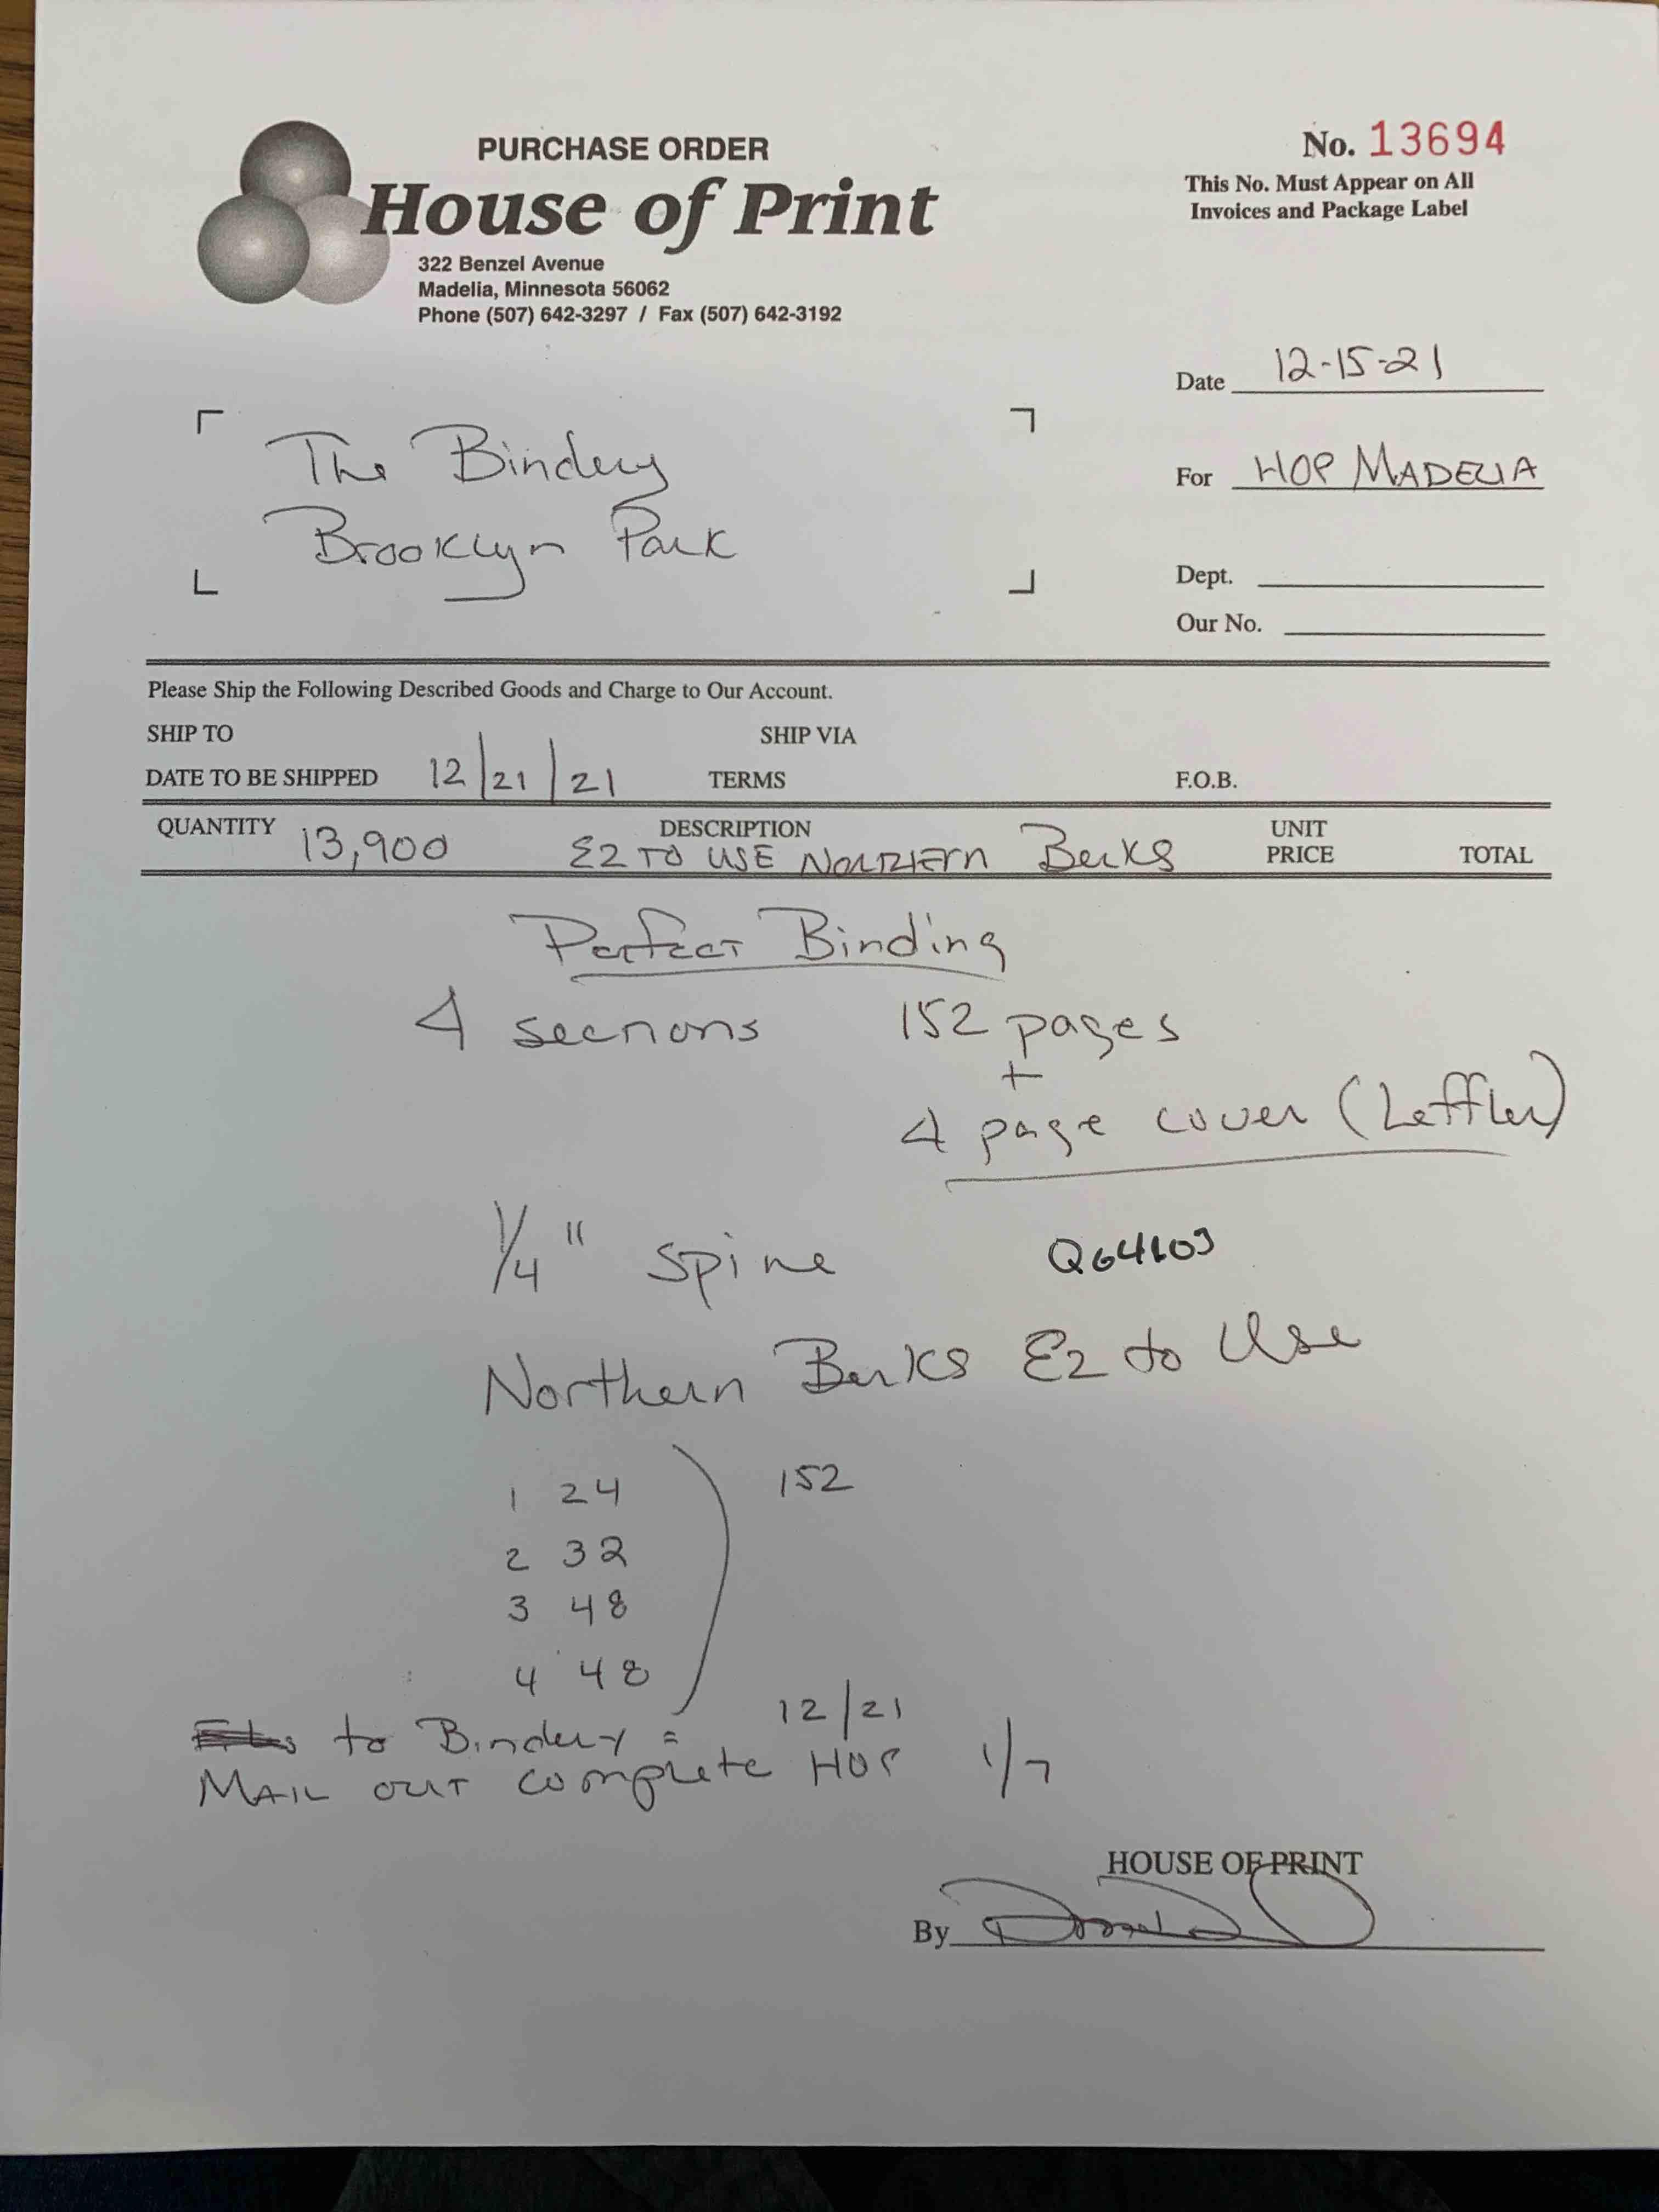 PURCHASE ORDER
No. 13694
House of Print
This No. Must Appear on All
Invoices and Package Label
322 Benzel Avenue
Madelia, Minnesota 56062
Phone (507) 642-3297 / Fax (507) 642-3192
Date 12-15-21
The Bindery
Brooklyn Park
For HOP MADELIA
Dept.
Our No.
Please Ship the Following Described Goods and Charge to Our Account.
SHIP TO SHIP VIA
DATE TO BE SHIPPED 12/21/21 TERMS F.O.B.
QUANTITY 13,900 DESCRIPTION UNIT PRICE TOTAL
EZ TO USE NORTHERN Berks
Perfect Binding
4 sections 152 pages
+
4 page cover (Leffler)
1/4" spine
Northern Berks EZ to Use
1 24 152
2 32
3 48
4 48
to Bindery = 12/21
MAIL OUT complete HOP 1/7
HOUSE OF PRINT
By